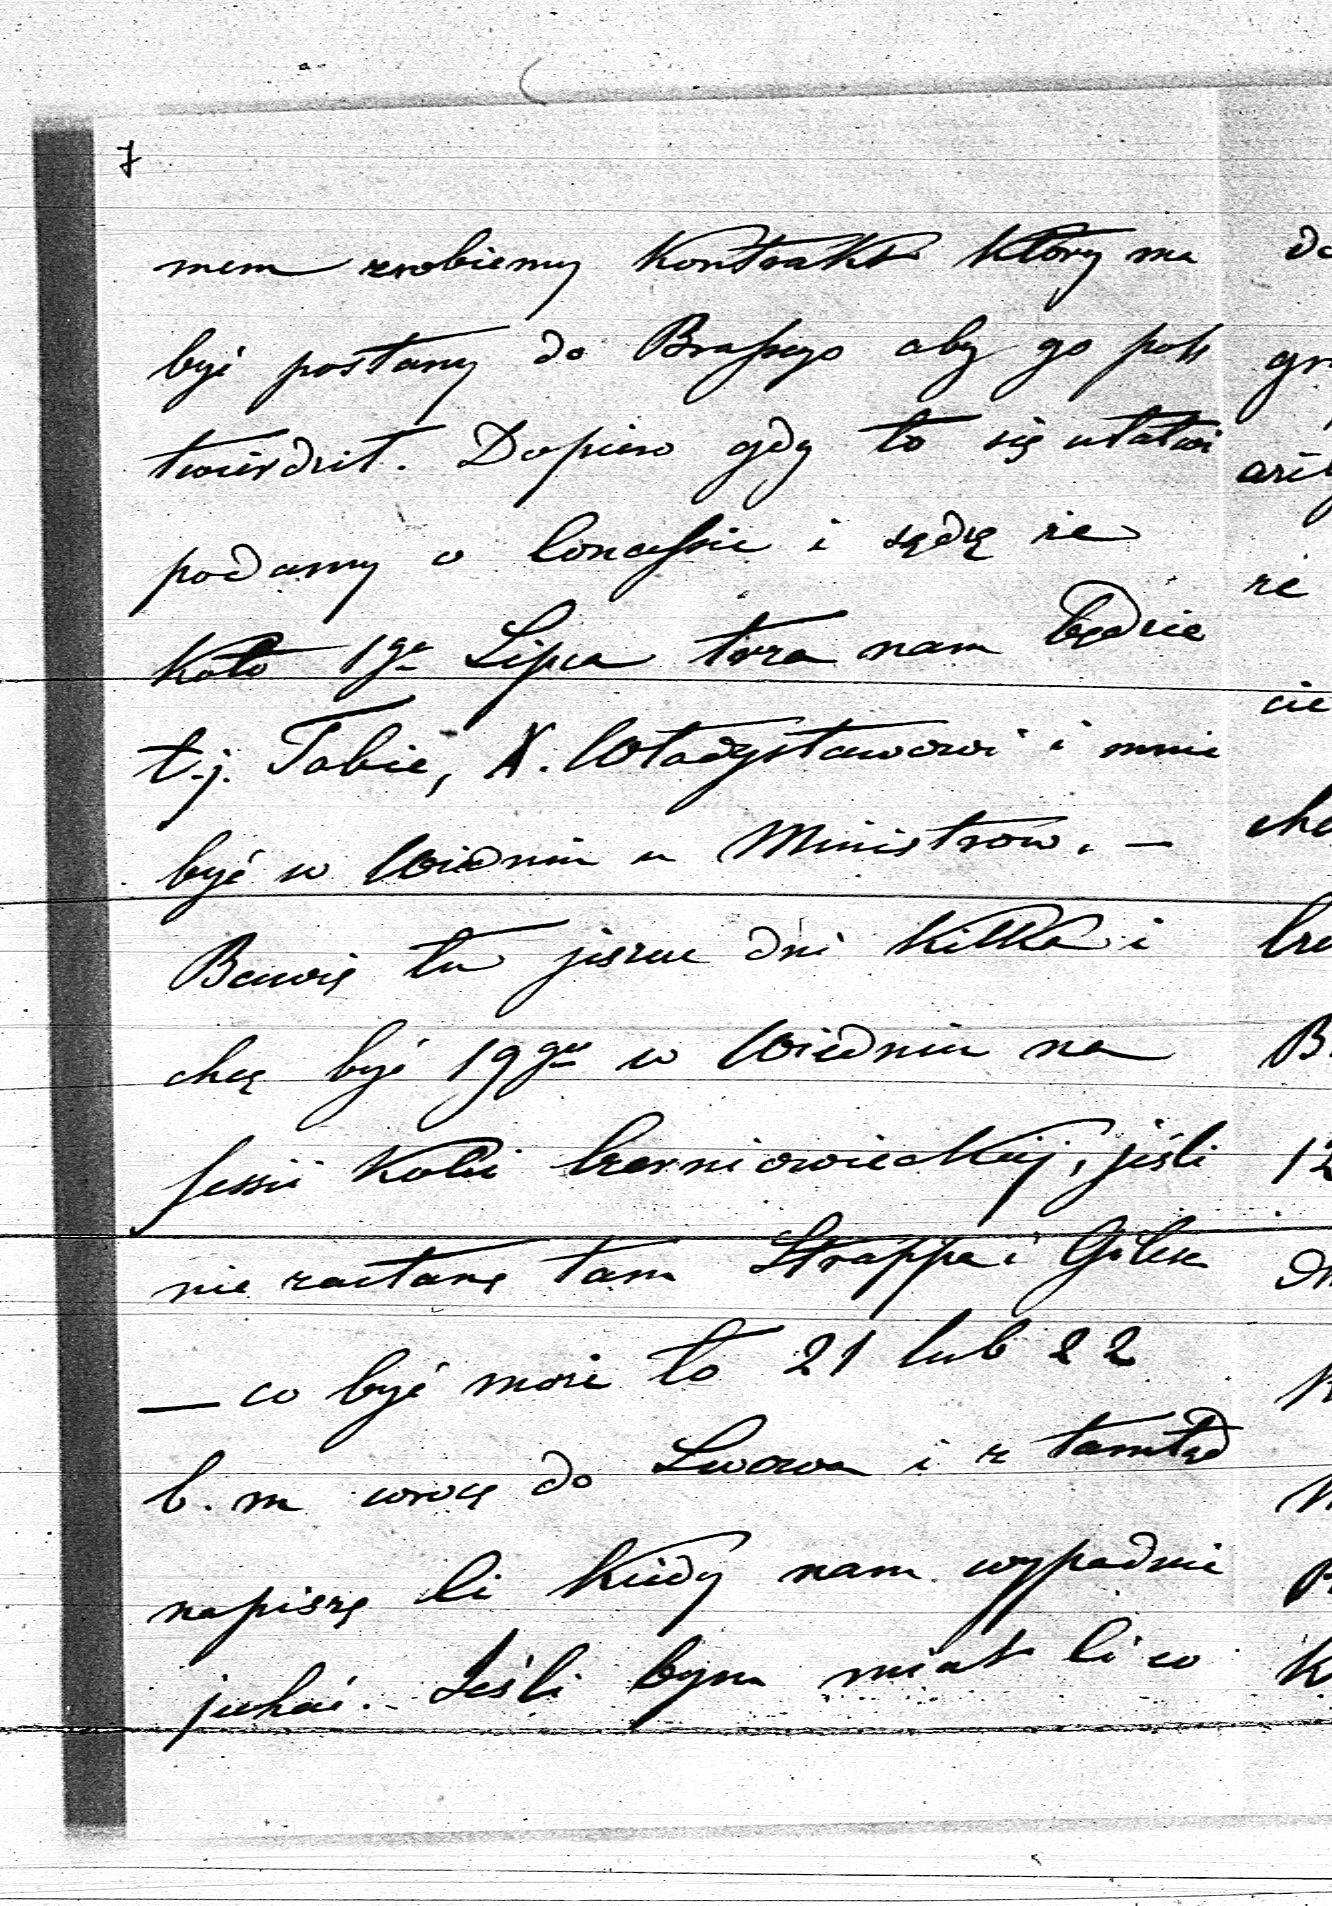 7
mem zrobiemy Kontrakt Który ma
być posłany do Brassego aby go pot
twierdził. Dopiero gdy to się ułatwi
podamy o Concessie i sądzę że
Koło 1go Lipca trza nam będzie
t.j. Tobie, X. Władysławowi i mnie
być w Wiedniu u Ministrow. —
Bawię tu jeszcze dni Kilka i
chcę być 19go w Wiedniu na
sessii Kolei Czerniowieckiej, jeśli
nie zastanę tam Strappa i Gilesa
— co być może to 21 lub 22
b. m wrócę do Lwowa i z tamtąd
napiszę Ci Kiedy nam wypadnie
jechać. Jeśli bym miał Ci co